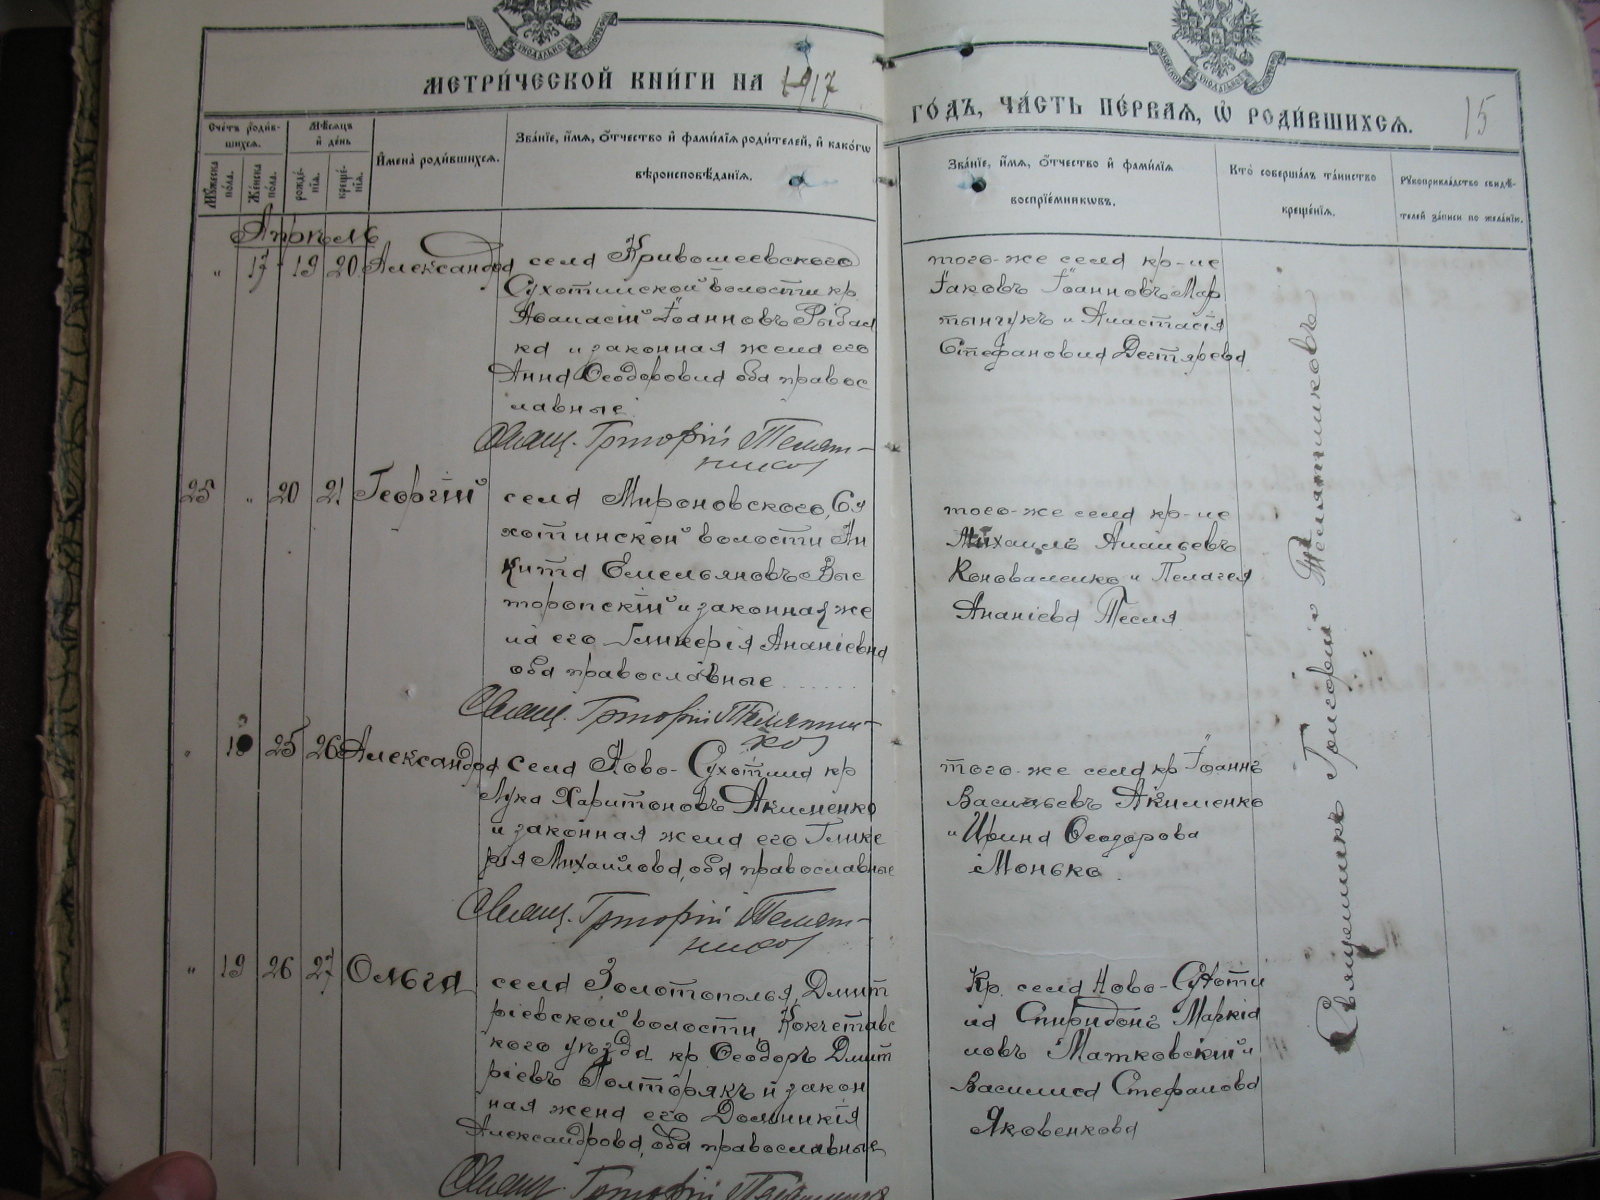 МЕТРИ́ЧЕСКОЙ КНИ́ГИ НА 1917
ГО́ДЪ, ЧА́СТЬ ПЕ́РВАЯ, Ѡ҆ РОДИ́ВШИХСЯ.
15
Сче́тъ роди́в-
шихся.
Му́жеска
по́ла.
Же́нска
по́ла.
Мѣ́сяцъ
и҆ де́нь
рожде́-
нія.
креще́-
нія.
И҆мена̀ роди́вшихся.
Зва́ніе, и҆́мя, ѻ҆́тчество и҆ фами́лія роди́телей, и҆ како́гѡ
вѣроисповѣ́данія.
Зва́ніе, и҆́мя, ѻ҆́тчество и҆ фами́лія
воспріе́мникѡвъ.
Кто̀ соверша́лъ та́инство
креще́нія.
Рукоприкла́дство свидѣ́-
телей за́писи по жела́нію.
Апрѣль
" 17 19 20 Александра
села Кривошеевскаго
Сухотинской волости кр
Аѳанасій Іоанновъ Рыбал
ка и законная жена его
Анна Ѳеодоровна оба правос
лавные.
Свящ. Григорій Темят-
никовъ
того-же села кр-не
Іаковъ Іоанновъ Мар
тынчукъ и Анастасія
Стефановна Дегтярева
25 " 20 21 Георгій
села Мироновскаго, Су
хотинской волости Ан
Кита Емельяновъ Выс
торопскій и законная же
на его Гликерія Ананіевна
оба православные
Свящ. Григорій Темятни-
ковъ
того-же села кр-не
Михаилъ Ананьевъ
Коноваленко и Пелагея
Ананіева Тесля
" 18 25 26 Александра
села Ново-Сухотина кр
Лука Харитоновъ Акименко
и законная жена его Глике
рія Михаилова, оба православные
Свящ. Григорій Темят-
никовъ
того-же села кр Іоаннъ
Васильевъ Акименко
и Ирина Ѳеодорова
Монько.
" 19 26 27 Ольга
села Золотополья, Дмит
ріевской волости, Кокчетавс
кого уѣзда кр Ѳеодоръ Дмит
ріевъ Полторякъ и закон
ная жена его Домникія
Александрова, оба православные
Свящ. Григорій
Кр. села Ново-Сухоти
на Спиридонъ Маркіа
новъ Матковскій и
Василиса Стефанова
Яковенкова
Священникъ Григорій Темятниковъ